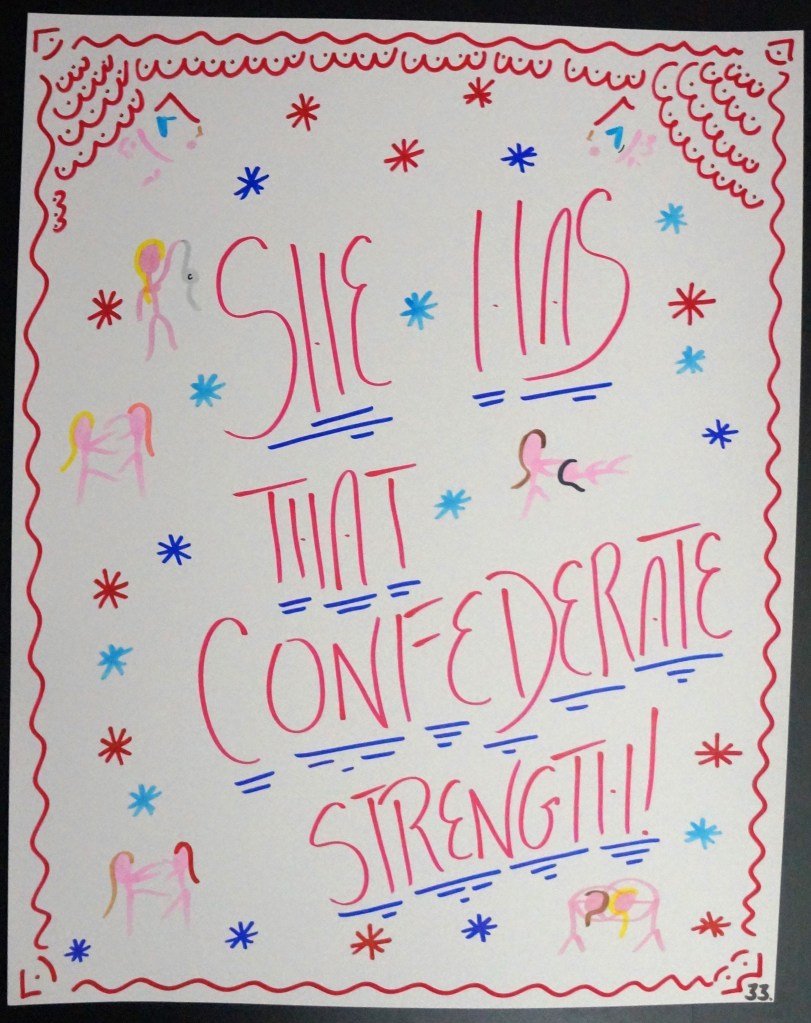 SHE HAS
THAT
CONFEDERATE
STRENGTH!
33.